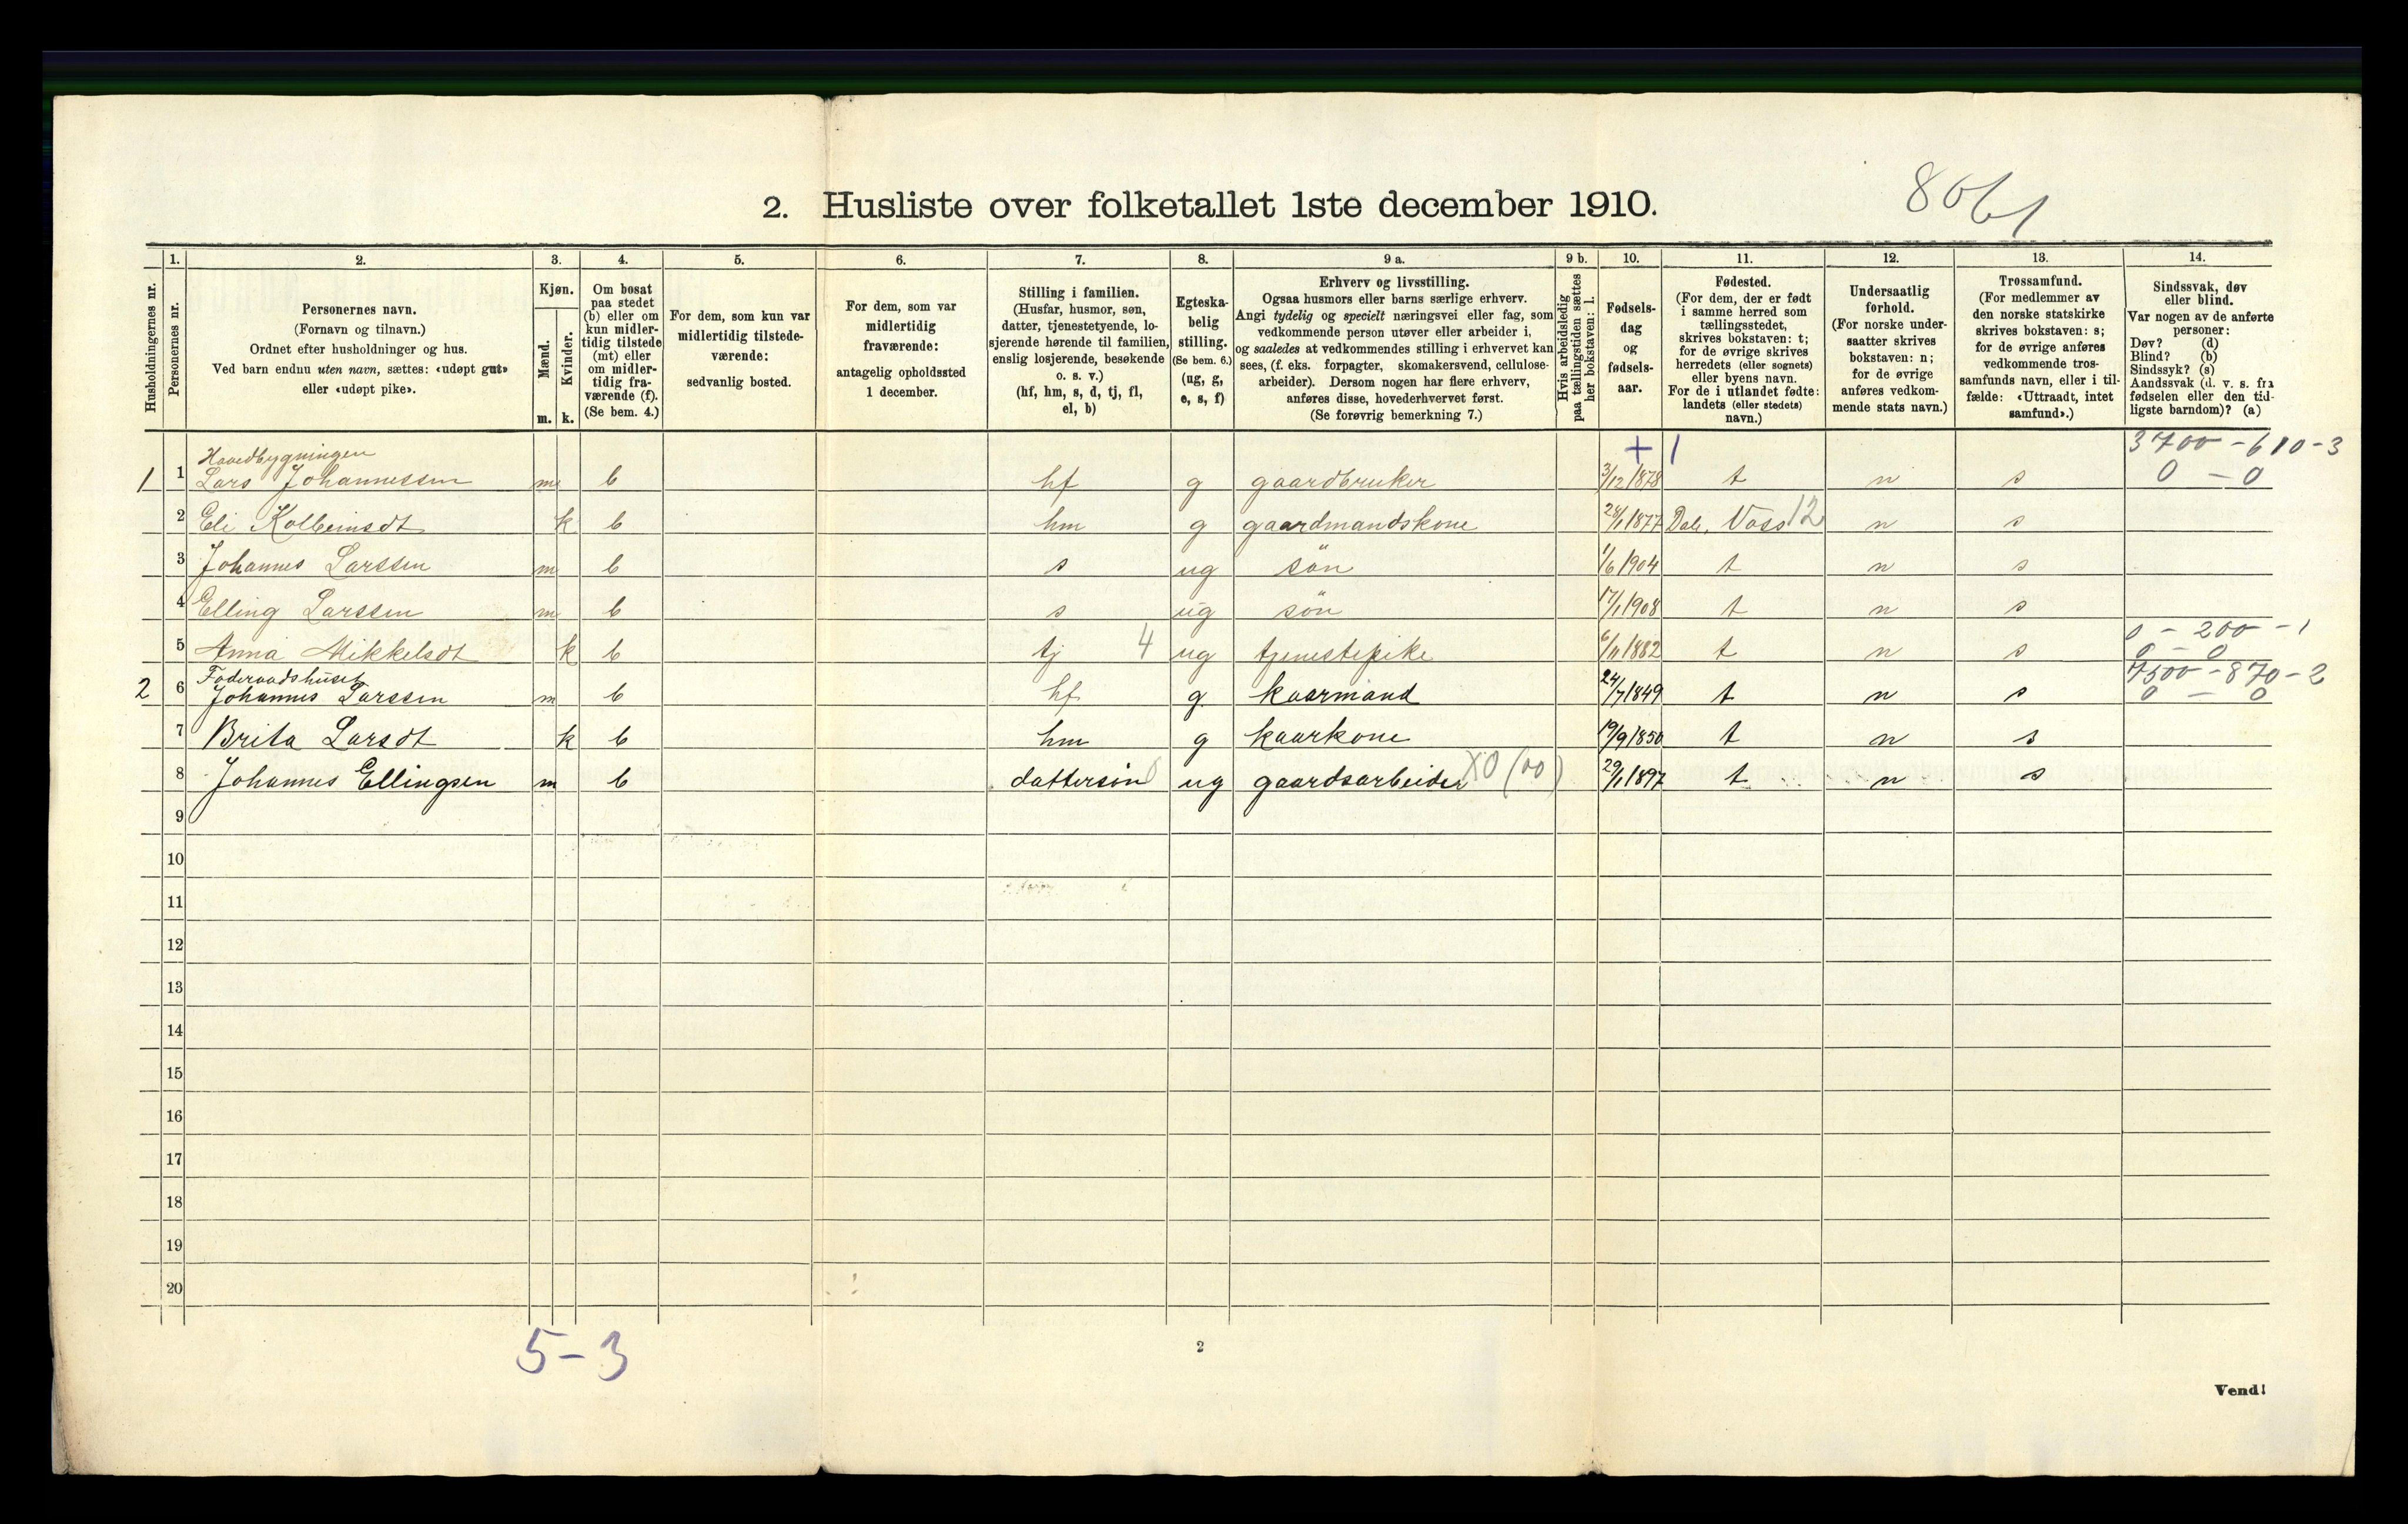 8061
2. Husliste over folketallet 1ste december 1910.
Husholdningernes nr.
1. Personernes nr.
2. Personernes navn.
(Fornavn og tilnavn.)
Ordnet efter husholdninger og hus.
Ved barn endnu uten navn, sættes: «udøpt gut»
eller «udøpt pike».
3. Kjøn.
Mænd. m.
Kvinder. k.
4. Om bosat
paa stedet
(b) eller om
kun midler-
tidig tilstede
(mt) eller
om midler-
tidig fra-
værende (f).
(Se bem. 4.)
5. For dem, som kun var
midlertidig tilstede-
værende:
sedvanlig bosted.
6. For dem, som var
midlertidig
fraværende:
antagelig opholdssted
1 december.
7. Stilling i familien.
(Husfar, husmor, søn,
datter, tjenestetyende, lo-
sjerende hørende til familien,
enslig losjerende, besøkende
o. s. v.)
(hf, hm, s, d, tj, fl,
el, b)
8. Egteska-
belig
stilling.
(Se bem. 6.)
(ug, g,
e, s, f)
9 a. Erhverv og livsstilling.
Ogsaa husmors eller barns særlige erhverv.
Angi tydelig og specielt næringsvei eller fag, som
vedkommende person utøver eller arbeider i,
og saaledes at vedkommendes stilling i erhvervet kan
sees, (f. eks. forpagter, skomakersvend, cellulose-
arbeider). Dersom nogen har flere erhverv,
anføres disse, hovederhvervet først.
(Se forøvrig bemerkning 7.)
9 b. Hvis arbeidsledig
paa tællingstiden sættes
her bokstaven: l.
10. Fødsels-
dag
og
fødsels-
aar.
11. Fødested.
(For dem, der er født
i samme herred som
tællingsstedet,
skrives bokstaven: t;
for de øvrige skrives
herredets (eller sognets)
eller byens navn.
For de i utlandet fødte:
landets (eller stedets)
navn.)
12. Undersaatlig
forhold.
(For norske under-
saatter skrives
bokstaven: n;
for de øvrige
anføres vedkom-
mende stats navn.)
13. Trossamfund.
(For medlemmer av
den norske statskirke
skrives bokstaven: s;
for de øvrige anføres
vedkommende tros-
samfunds navn, eller i til-
fælde: «Uttraadt, intet
samfund».)
14. Sindssvak, døv
eller blind.
Var nogen av de anførte
personer:
Døv? (d)
Blind? (b)
Sindssyk? (s)
Aandssvak (d. v. s. fra
fødselen eller den tid-
ligste barndom)? (a)
+ 1 3700 - 610 - 3
Hovedbygningen
1 1 Lars Johannessen m b hf g gaardbruker 3/12 1878 t n s 0 - 0
2 Eli Kolbeinsdt k b hm g gaardmandskone 28/1 1877 Dale, Voss 12 n s
3 Johannes Larssen m b s ug sön 1/6 1904 t n s
4 Elling Larssen m b s ug sön 17/1 1908 t n s
0 - 200 - 1
5 Anna Mikkelsdt k b tj 4 ug tjenestepike 6/11 1882 t n s 0 - 0
Föderaadshuset 7500 - 870 - 2
2 6 Johannes Larssen m b hf g kaarmand 24/7 1849 t n s 0 - 0
7 Brita Larsdt k b hm g kaarkone 19/9 1850 t n s
8 Johannes Ellingsen m b dattersön ug gaardsarbeider XO (00) 29/1 1897 t n s
9
10
11
12
13
14
15
16
17
18
19
20
5-3
2
Vend!